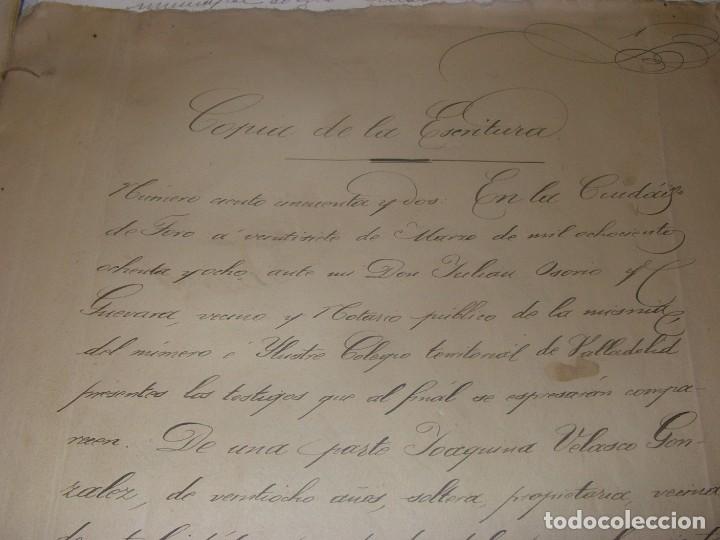 Copia de la Escritura.
Número ciento cincuenta y dos: En la Ciudád
de Toro á veintisiete de Marzo de mil ochociento
ochenta y ocho, ante mi Don Julian Osorio y
Guevara, vecino y Notario público de la misma
del número é Ylustre Colegio territoriál de Valladolid
presentes los testigos que al finál se espresarán compa-
recen. De una parte Joaquina Velasco Gon-
zalez, de veintiocho años, soltera, propietaria, vecina
todocoleccion
todocoleccion.net